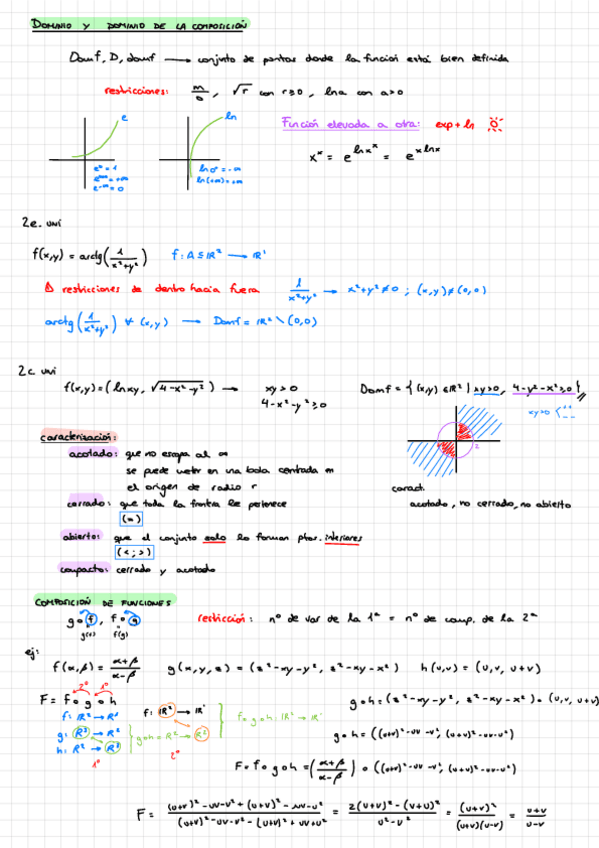 DOMINIO Y DOMINIO DE LA COMPOSICIÓN
Domf, D, domf → conjunto de puntos donde la función está bien definida
restricciones: m/0, √r con r≥0, ln a con a>0
e
ln
Función elevada a otra: exp + ln
xˣ = e^(ln xˣ) = e^(x ln x)
e⁰ = 1
e^(+∞) = +∞
e^(-∞) = 0
ln 0⁺ = -∞
ln(+∞) = +∞
2e. uni
f(x,y) = arctg(1/(x²+y²)) f: A ⊆ ℝ² → ℝ¹
restricciones de dentro hacia fuera 1/(x²+y²) → x²+y² ≠ 0 ; (x,y) ≠ (0,0)
arctg(1/(x²+y²)) ∀ (x,y) → Domf = ℝ² \ (0,0)
2c. uni
f(x,y) = (ln xy, √(4-x²-y²)) → xy > 0
4-x²-y² ≥ 0
Domf = { (x,y) ∈ ℝ² | xy>0, 4-y²-x² ≥ 0 }
xy>0 < ++ --
2
caracterización:
acotado: que no escapa al ∞
se puede meter en una bola centrada en
el origen de radio r
cerrado: que toda la frontera le pertenece
(=)
abierto: que el conjunto solo lo forman ptos. interiores
(< ; >)
compacto: cerrado y acotado
caract.
acotado, no cerrado, no abierto
COMPOSICIÓN DE FUNCIONES
g∘f, f∘g
g(f) f(g)
restricción: nº de var de la 1ª = nº de comp. de la 2ª
ej:
f(α,β) = (α+β)/(α-β) g(x,y,z) = (z²-xy-y², z²-xy-x²) h(u,v) = (u,v, u+v)
2º 1º
F = f∘g∘h
f: ℝ² → ℝ¹
g: ℝ³ → ℝ²
h: ℝ² → ℝ³
1º
f: ℝ² → ℝ¹
g∘h = ℝ² → ℝ²
2º
f∘g∘h: ℝ² → ℝ¹
g∘h = (z²-xy-y², z²-xy-x²) ∘ (u,v, u+v)
g∘h = ((u+v)²-uv-v², (u+v)²-uv-u²)
F = f∘g∘h = ((α+β)/(α-β)) ∘ ((u+v)²-uv-v², (u+v)²-uv-u²)
F = ((u+v)²-uv-v²+(u+v)²-uv-u²)/((u+v)²-uv-v²-(u+v)²+uv+u²) = (2(u+v)²-(u+v)²)/(u²-v²) = (u+v)²/((u+v)(u-v)) = (u+v)/(u-v)